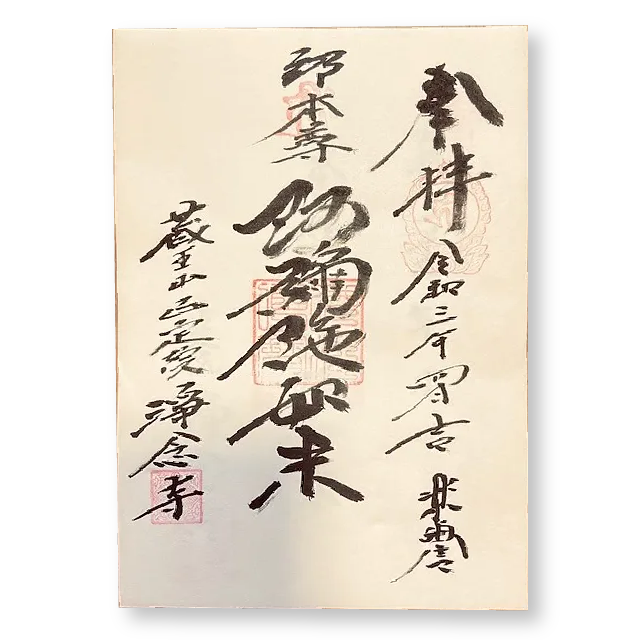 奉拝 令和三年四月吉
御本尊
阿彌陀如来
蔵王山正定院浄念寺